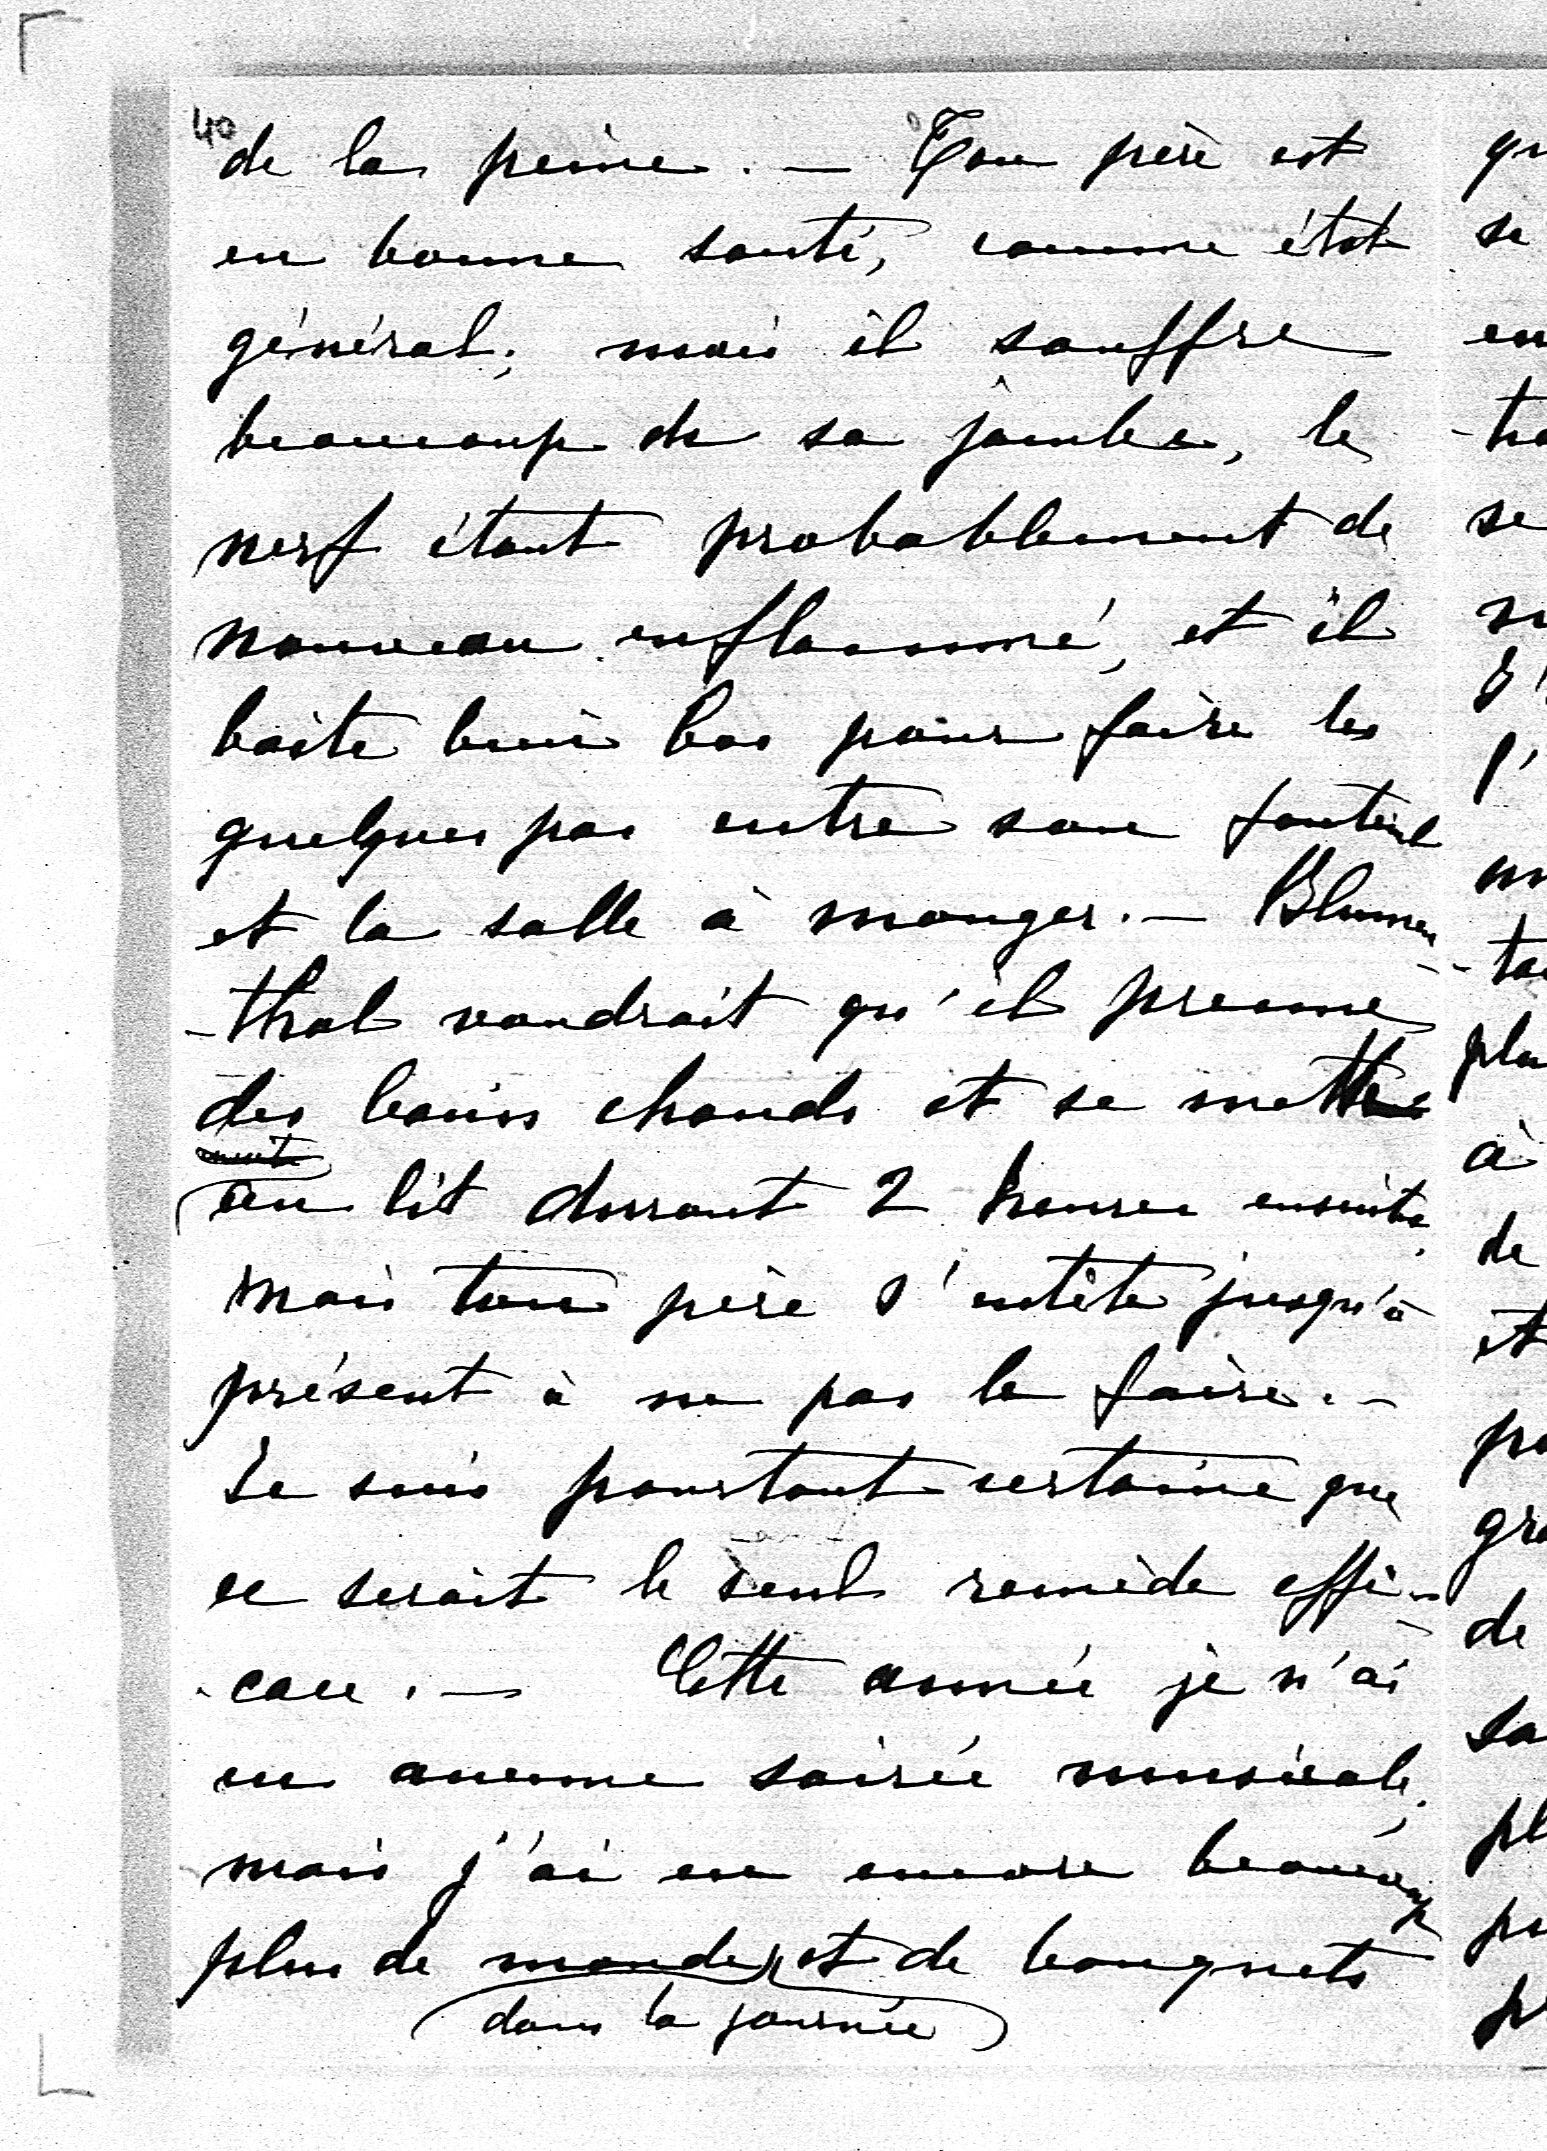 40
de la peine. — Ton père est
en bonne santé, comme état
général; mais il souffre
beaucoup de sa jambe, le
nerf étant probablement de
nouveau enflammé, et il
boite bien bas pour faire les
quelques pas entre son fauteuil
et la salle à manger. — Blumen-
-thal voudrait qu'il prenne
des bains chauds et se mette
au lit durant 2 heures ensuite,
mais ton père s'entête jusqu'à
présent à ne pas le faire. -
Je suis pourtant certaine que
ce serait le seul remède effi-
-cace. — Cette année je n'ai
eu aucune soirée musicale;
mais j'ai eu encore beaucoup
plus de monde, et de bouquets
(dans la journée)